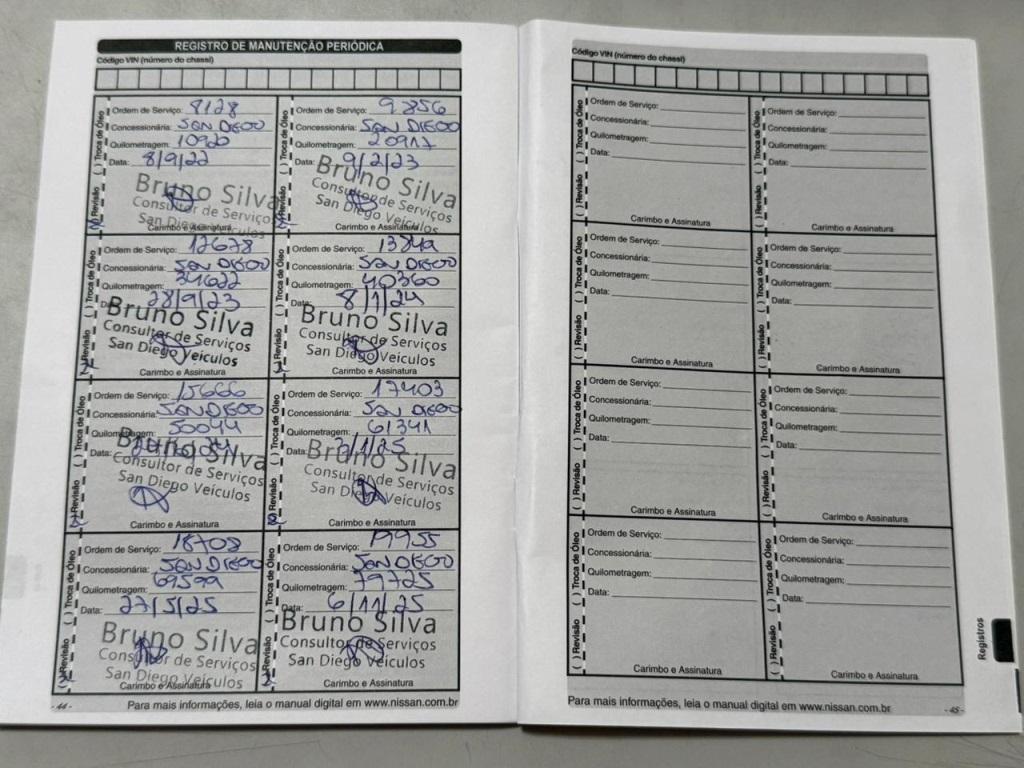 REGISTRO DE MANUTENÇÃO PERIÓDICA
Código VIN (número do chassi)
( ) Revisão ( ) Troca de Óleo
Ordem de Serviço: 8128
Concessionária: SAN DIEGO
Quilometragem: 10920
Data: 8/9/22
Bruno Silva
Consultor de Serviços
San Diego Veículos
Carimbo e Assinatura
( ) Revisão ( ) Troca de Óleo
Ordem de Serviço: 9856
Concessionária: SAN DIEGO
Quilometragem: 20917
Data: 9/2/23
Bruno Silva
Consultor de Serviços
San Diego Veículos
Carimbo e Assinatura
( ) Revisão ( ) Troca de Óleo
Ordem de Serviço: 12678
Concessionária: SAN DIEGO
Quilometragem: 34622
Data: 28/9/23
Bruno Silva
Consultor de Serviços
San Diego Veículos
Carimbo e Assinatura
( ) Revisão ( ) Troca de Óleo
Ordem de Serviço:
Concessionária: SAN DIEGO
Quilometragem: 40360
Data: 8/1/24
Bruno Silva
Consultor de Serviços
San Diego Veículos
Carimbo e Assinatura
( ) Revisão ( ) Troca de Óleo
Ordem de Serviço: 15666
Concessionária: SAN DIEGO
Quilometragem: 50044
Data:
Bruno Silva
Consultor de Serviços
San Diego Veículos
Carimbo e Assinatura
( ) Revisão ( ) Troca de Óleo
Ordem de Serviço: 17403
Concessionária: SAN DIEGO
Quilometragem: 61341
Data:
Bruno Silva
Consultor de Serviços
San Diego Veículos
Carimbo e Assinatura
( ) Revisão ( ) Troca de Óleo
Ordem de Serviço: 18708
Concessionária: SAN DIEGO
Quilometragem: 69599
Data: 27/5/25
Bruno Silva
Consultor de Serviços
San Diego Veículos
Carimbo e Assinatura
( ) Revisão ( ) Troca de Óleo
Ordem de Serviço: 19955
Concessionária: SAN DIEGO
Quilometragem: 79725
Data: 6/11/25
Bruno Silva
Consultor de Serviços
San Diego Veículos
Carimbo e Assinatura
- 44 -
Para mais informações, leia o manual digital em www.nissan.com.br
Código VIN (número do chassi)
( ) Revisão ( ) Troca de Óleo
Ordem de Serviço:
Concessionária:
Quilometragem:
Data:
Carimbo e Assinatura
( ) Revisão ( ) Troca de Óleo
Ordem de Serviço:
Concessionária:
Quilometragem:
Data:
Carimbo e Assinatura
( ) Revisão ( ) Troca de Óleo
Ordem de Serviço:
Concessionária:
Quilometragem:
Data:
Carimbo e Assinatura
( ) Revisão ( ) Troca de Óleo
Ordem de Serviço:
Concessionária:
Quilometragem:
Data:
Carimbo e Assinatura
( ) Revisão ( ) Troca de Óleo
Ordem de Serviço:
Concessionária:
Quilometragem:
Data:
Carimbo e Assinatura
( ) Revisão ( ) Troca de Óleo
Ordem de Serviço:
Concessionária:
Quilometragem:
Data:
Carimbo e Assinatura
( ) Revisão ( ) Troca de Óleo
Ordem de Serviço:
Concessionária:
Quilometragem:
Data:
Carimbo e Assinatura
( ) Revisão ( ) Troca de Óleo
Ordem de Serviço:
Concessionária:
Quilometragem:
Data:
Carimbo e Assinatura
Registros
Para mais informações, leia o manual digital em www.nissan.com.br
- 45 -